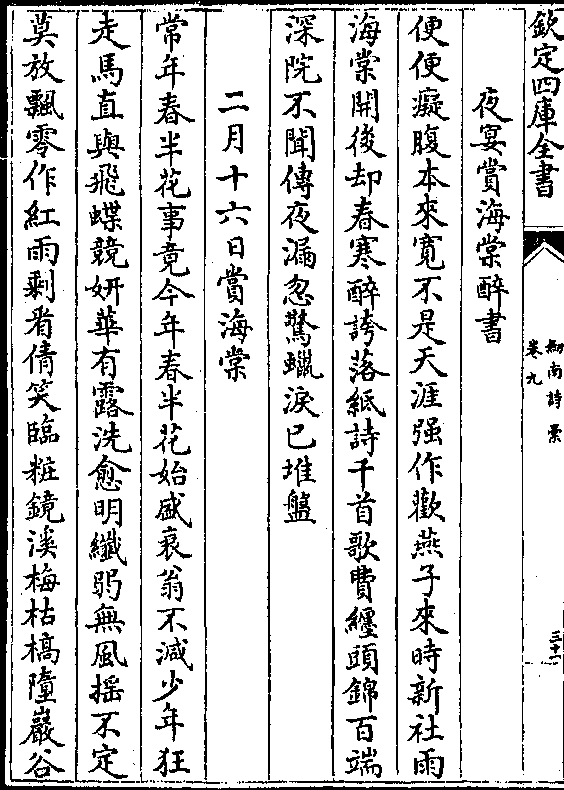 欽定四庫全書
劍南詩槀
卷九
三十一
夜宴賞海棠醉書
便便癡腹本來寬不是天涯强作歡燕子來時新社雨
海棠開後却春寒醉誇落紙詩千首歌費纒頭錦百端
深院不聞傳夜漏忽驚蠟淚已堆盤
二月十六日賞海棠
常年春半花事竟今年春半花始盛衰翁不減少年狂
走馬直與飛蝶競妍華有露洗愈明纖弱無風揺不定
莫放飄零作紅雨剰看倩笑臨粧鏡溪梅枯槁墮巖谷